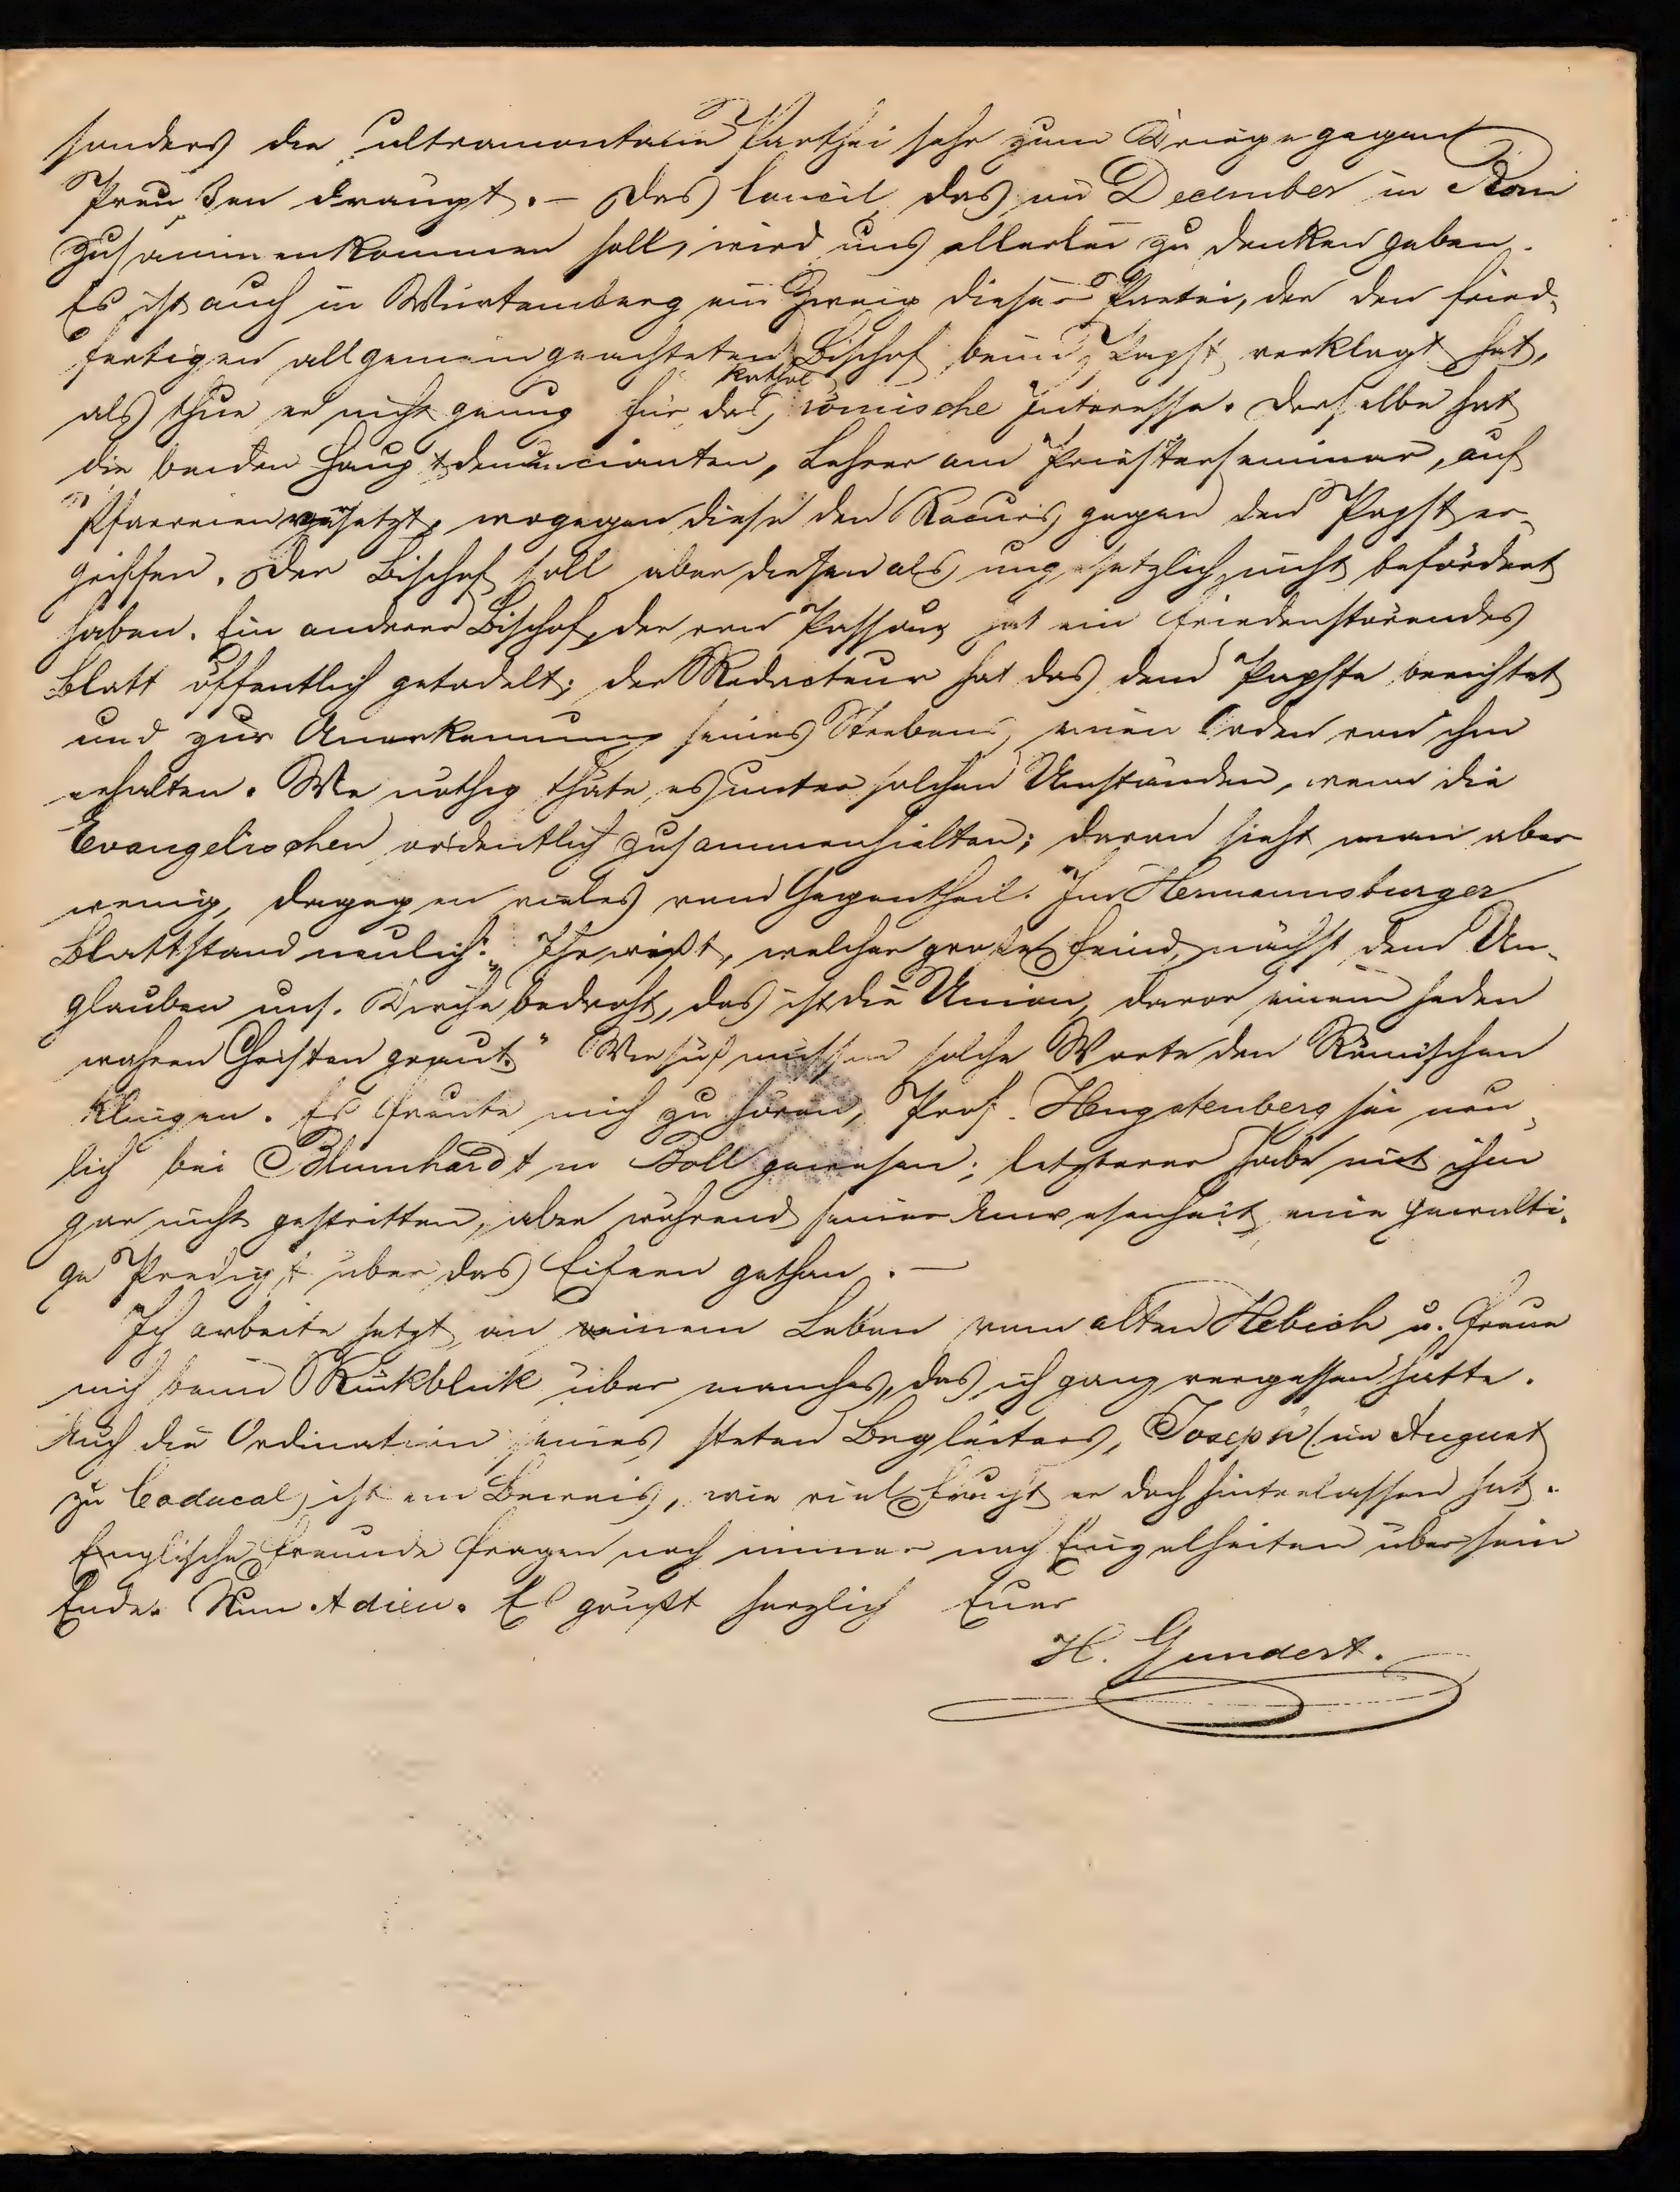 sonders die ultramontane Parthei sehr zum Kriege gegen
Preußen draengt. – Das Concil, das im December in Rom
zusammenkommen soll, wird uns allerlei zu denken geben.
Es ist auch in Würtemberg ein Zweig dieser Partei, der den fried-
fertigen allgemein geachteten Bischof beim Papst verklagt hat,
als thue er nicht genug für das kathol römische Interesse. Derselbe hat
die beiden Hauptdenuncianten, Lehrer am Priesterseminar, auf
Pfarreien versetzt, wogegen diese den Recurs gegen den Papst er-
griffen. Der Bischof soll aber diesen als ungesetzlich nicht befördert
haben. Ein anderer Bischof, der von Passau hat ein friedenstörendes
Blatt öffentlich getadelt; der Redacteur hat das dem Papste berichtet
und zur Anerkennung seines Strebens, einen Orden von ihm
erhalten. Wie nöthig thäte es unter solchen Umständen, wenn die
Evangelischen ordentlich zusammenhielten; davon sieht man aber
wenig, dagegen vieles vom Gegentheil. Im Hermannsburger
Blatt stand neulich: „Ihr wißt, welcher große Feind, nächst dem Un-
glauben uns. Kirche bedroht, das ist die Union, davor einem jeden
wahren Christen graut.“ Wie süß müssen solche Worte den Römischen
klingen. Es freute mich zu hören, Prof. Hengstenberg sei neu-
lich bei Blumhardt in Boll gewesen; letzterer habe mit ihm
gar nicht gestritten, aber während seiner Anwesenheit eine gewalti-
ge Predigt über das Eifern gethan. –
Ich arbeite jetzt an einem Leben vom alten Hebich u. freue
mich beim Rückblick über manches, das ich ganz vergessen hatte.
Auch die Ordination seines steten Begleiters, Joseph (im August
zu Codacal) ist ein Beweis, wie viel Frucht er doch hinterlassen hat.
Englische Freunde fragen noch immer nach Einzelheiten über sein
Ende. Nun Adieu. Es grüßt herzlich Euer
H. Gundert.